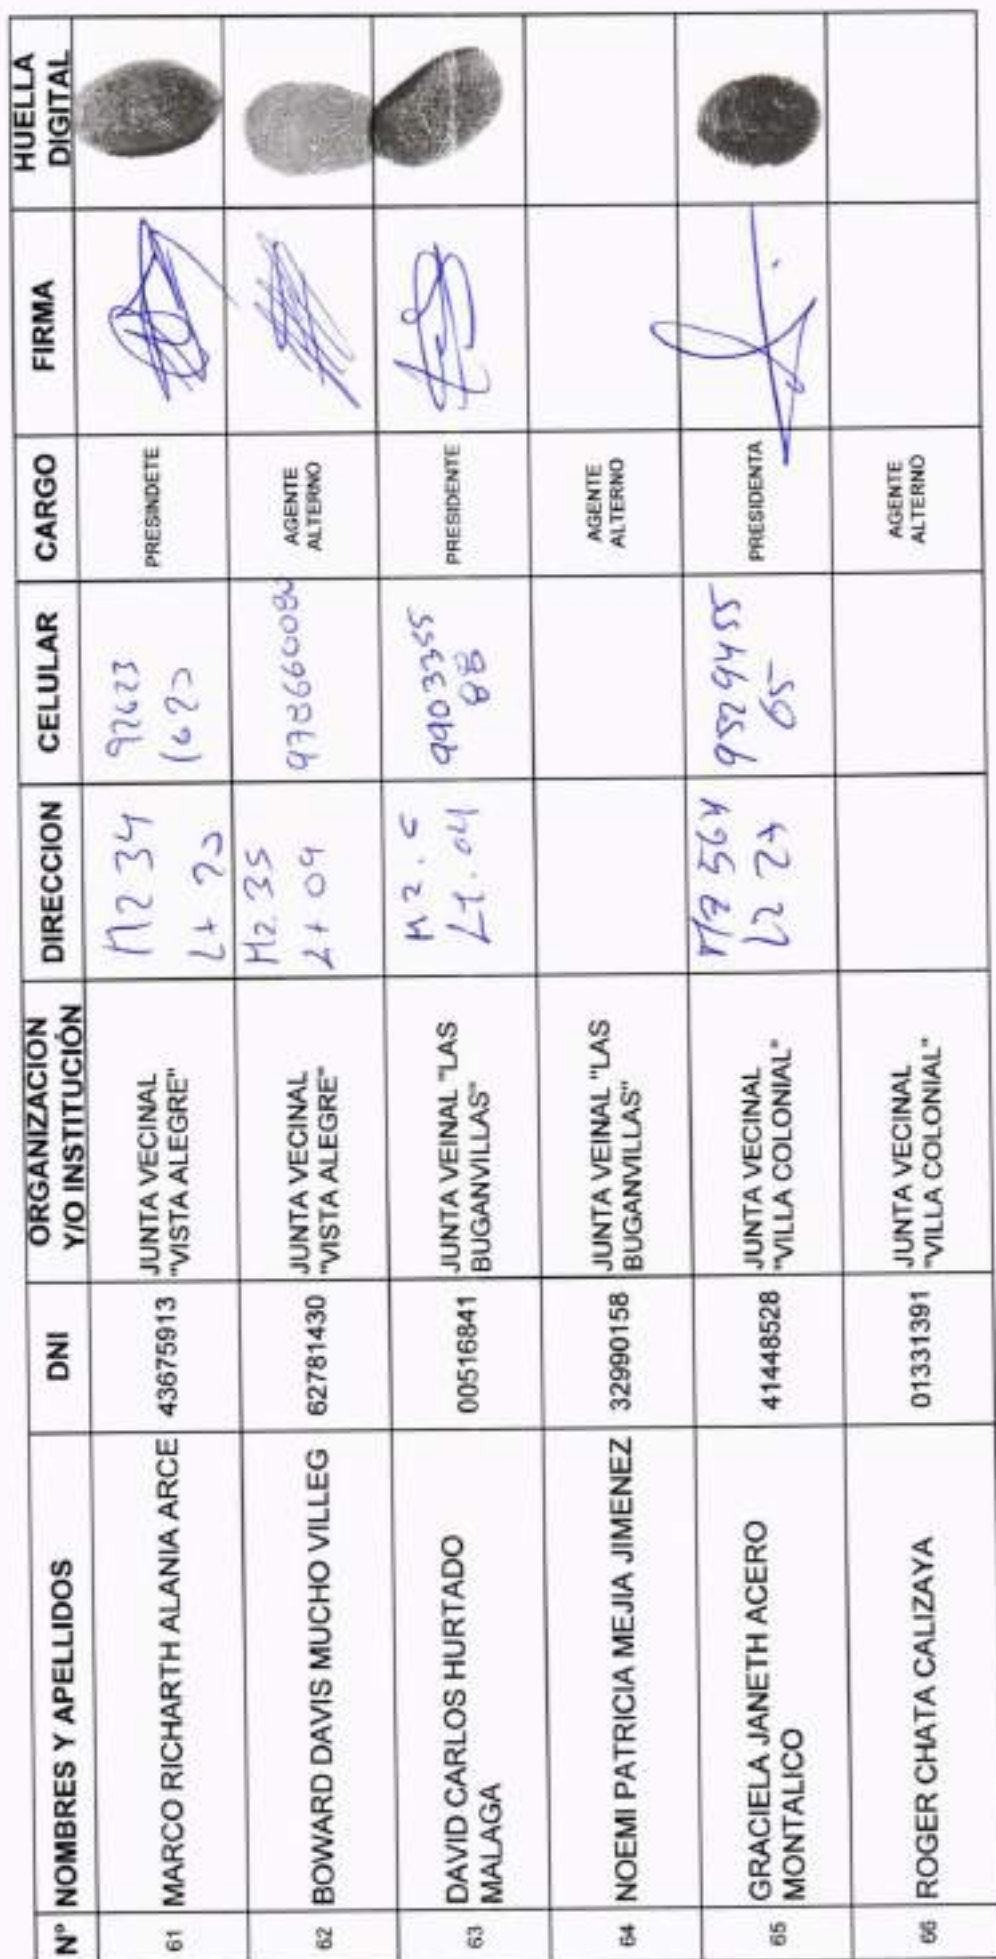 Nº NOMBRES Y APELLIDOS DNI ORGANIZACION Y/O INSTITUCIÓN DIRECCION CELULAR CARGO FIRMA HUELLA DIGITAL
61 MARCO RICHARTH ALANIA ARCE 43675913 JUNTA VECINAL
"VISTA ALEGRE"
Mz 34
PRESINDETE
62 BOWARD DAVIS MUCHO VILLEG 62781430 JUNTA VECINAL
"VISTA ALEGRE"
Mz. 35
Lt 09
AGENTE
ALTERNO
63 DAVID CARLOS HURTADO
MALAGA
00516841
JUNTA VEINAL "LAS
BUGANVILLAS"
Lt. 04
9903355
88
PRESIDENTE
64 NOEMI PATRICIA MEJIA JIMENEZ 32990158 JUNTA VEINAL "LAS
BUGANVILLAS"
AGENTE
ALTERNO
65 GRACIELA JANETH ACERO
MONTALICO
41448528
JUNTA VECINAL
"VILLA COLONIAL"
PRESIDENTA
66 ROGER CHATA CALIZAYA 01331391 JUNTA VECINAL
"VILLA COLONIAL"
AGENTE
ALTERNO